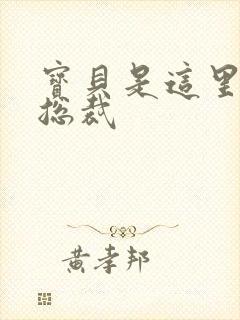 寶貝是這里
總裁
黄孝邦